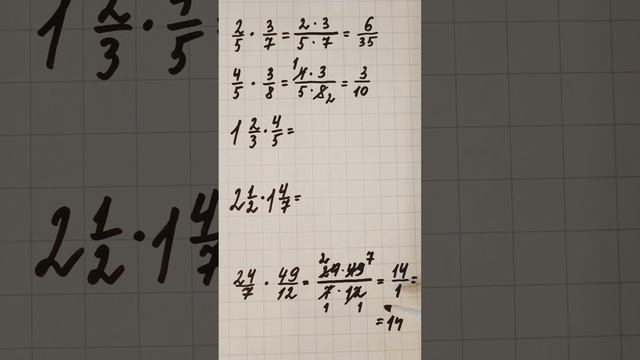 2/5 · 3/7 = 2 · 3 / 5 · 7 = 6/35
4/5 · 3/8 = 1 4 · 3 / 5 · 8 2 = 3/10
1 2/3 · 4/5 =
2 1/2 · 1 4/7 =
24/7 · 49/12 = 2 24 · 49 7 / 7 1 · 12 1 = 14/1 =
= 14